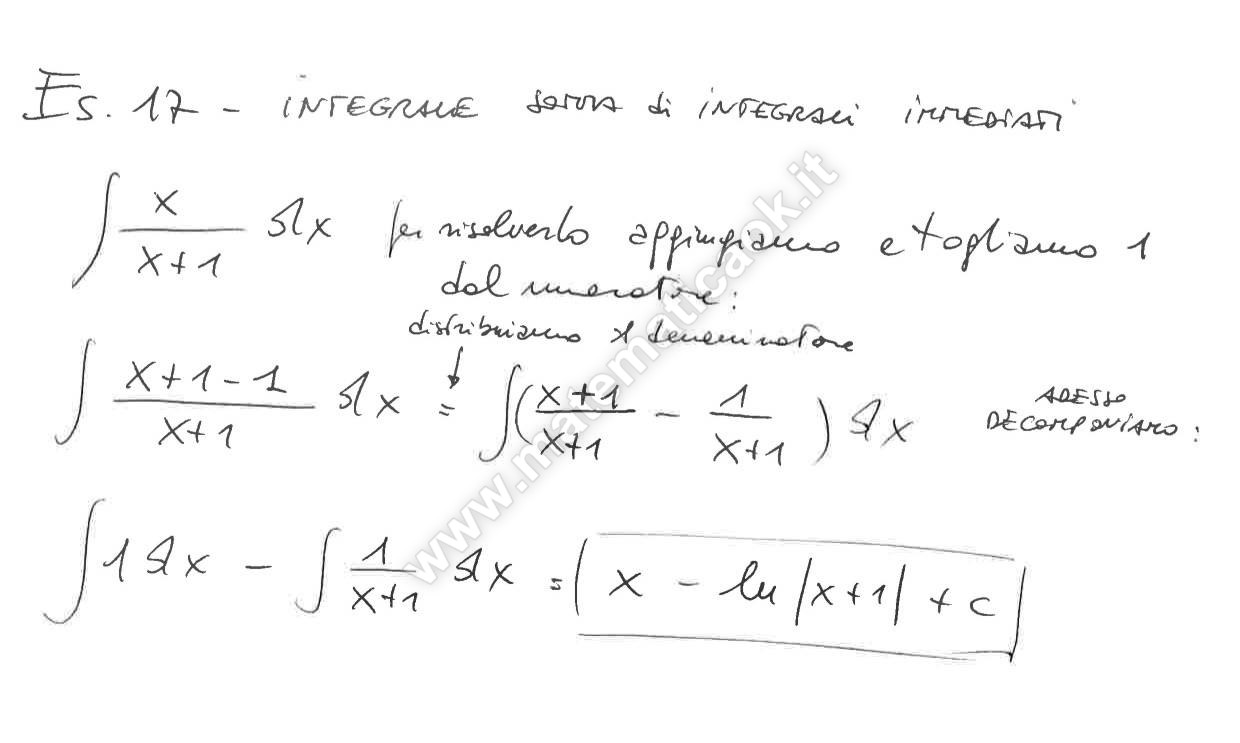 Es. 17 - INTEGRALE somma di INTEGRALI IMMEDIATI
∫ x/(x+1) dx per risolverlo aggiungiamo e togliamo 1
dal numeratore:
distribuiamo il denominatore
∫ (x+1-1)/(x+1) dx = ∫ ((x+1)/(x+1) - 1/(x+1)) dx ADESSO DECOMPONIAMO:
∫ 1 dx - ∫ 1/(x+1) dx = x - ln |x+1| + c
www.matematicaok.it